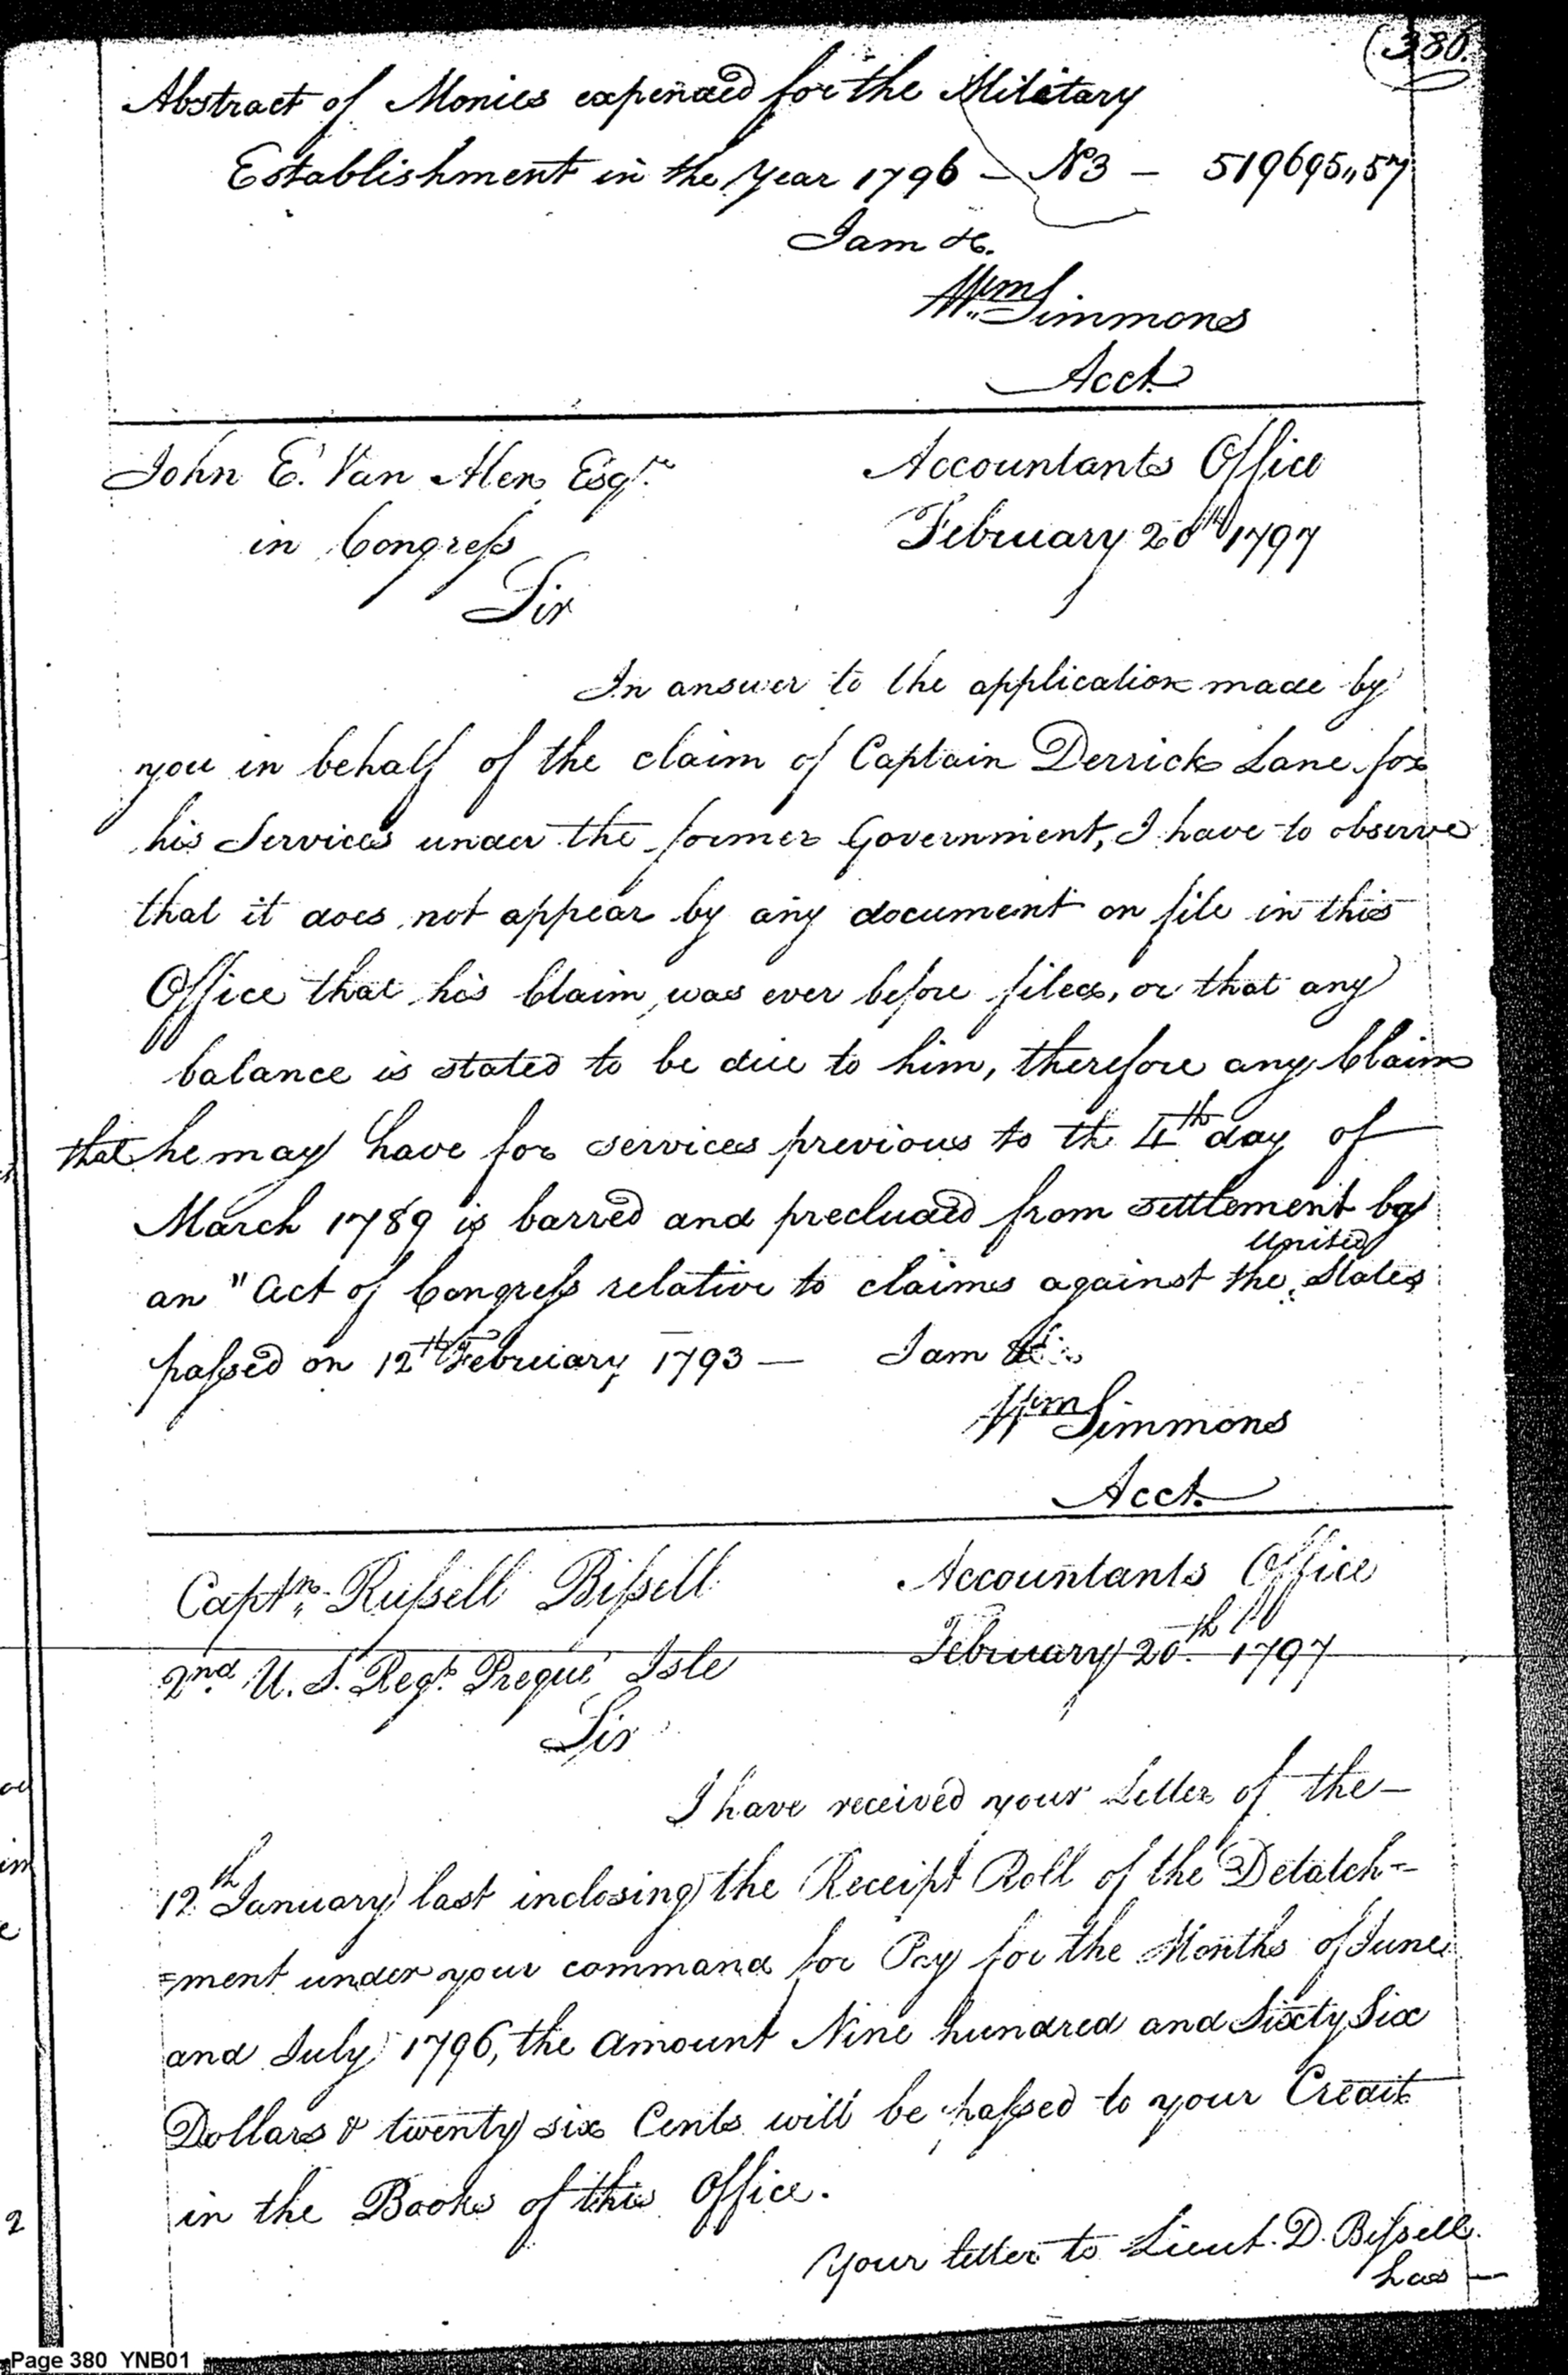 (380.
Abstract of Monies expended for the Military
Establishment in the Year 1796 — No 3 — 519695,,57
I am &c.
Wm Simmons
Acct.
John E. Van Alen Esqr.
in Congress
Accountants Office
February 20th 1797
Sir
In answer to the application made by
you in behalf of the claim of Captain Derrick Lane for
his Services under the former Government, I have to observe
that it does not appear by any document on file in this
Office that his Claim was ever before filed, or that any
balance is stated to be due to him, therefore any Claim
that he may have for services previous to th 4th day of
March 1789 is barred and precluded from settlement by
an "Act of Congress relative to claims against the United States
passed on 12th February 1793 — I am &c
Wm Simmons
Acct.
Captn. Russell Bissell
2nd U. S. Regt. Preque Isle
Accountants Office
February 20th 1797
Sir
I have received your Letter of the —
12th January last inclosing the Receipt Roll of the Detatch=
=ment under your command for Pay for the Months of June
and July 1796, the amount Nine hundred and Sixty Six
Dollars & twenty six Cents will be passed to your Credit
in the Books of this Office.
Your letter to Lieut. D. Bissell
has —
Page 380 YNB01